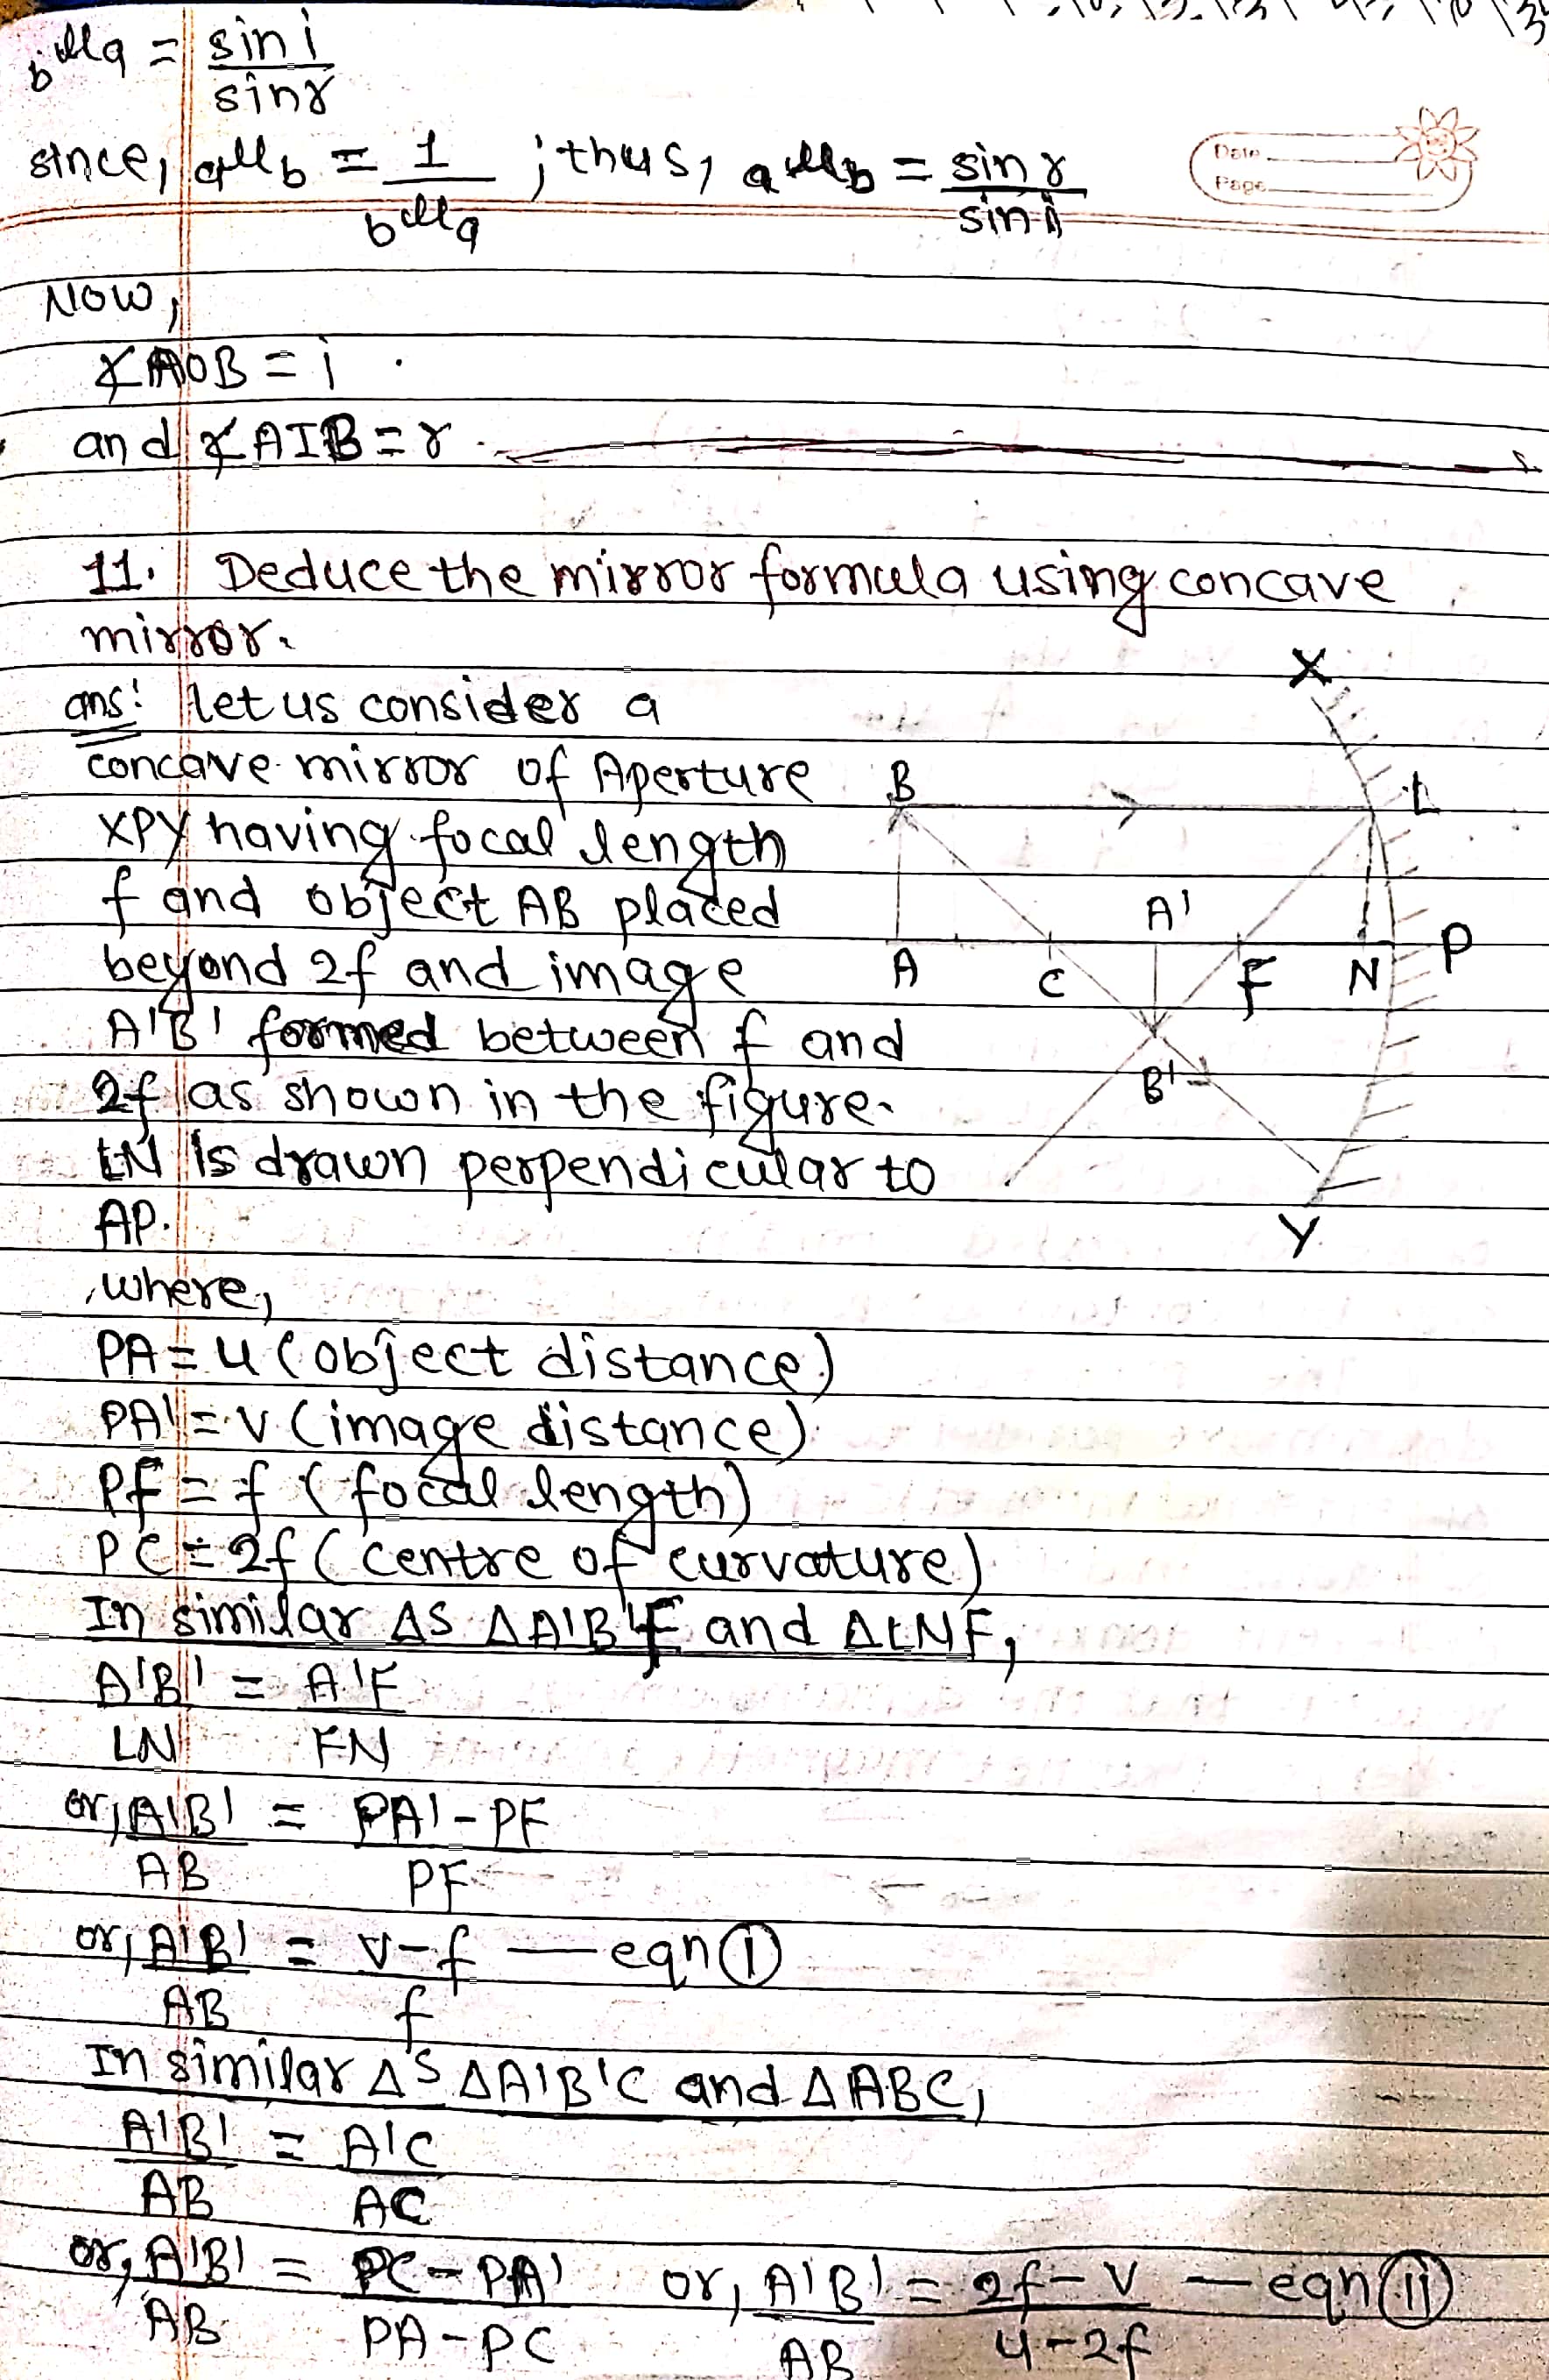 bμa = sin i
sin r
Date
Page
since, aμb = 1 ; thus, aμb = sin r
bμa sin i
Now,
∡AOB = i
and ∡AIB = r
11. Deduce the mirror formula using concave
mirror.
ans: let us consider a
concave mirror of Aperture
XPY having focal length
f and object AB placed
beyond 2f and image
A'B' formed between f and
2f as shown in the figure.
LN is drawn perpendicular to
AP.
X
B
L
A'
A
C
F
N
P
B'
Y
where,
PA = u (object distance)
PA' = v (image distance)
Pf = f (focal length)
PC = 2f (centre of curvature)
In similar Δs ΔA'B'F and ΔLNF,
A'B' = A'F
LN FN
or, A'B' = PA' - PF
AB PF
or, A'B' = v-f — eqn (i)
AB f
In similar Δs ΔA'B'C and ΔABC,
A'B' = A'C
AB AC
or, A'B' = PC - PA' or, A'B' = 2f - v — eqn (ii)
AB PA - PC AB u - 2f